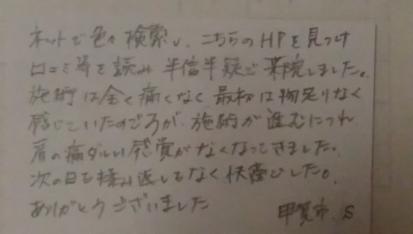 ネットで色々検索し、こちらのHPを見つけ
口コミ等を読み半信半疑で来院しました。
施術は全く痛くなく最初は物足りなく
感じていたのですが、施術が進むにつれ
肩の痛ダルい感覚がなくなってきました。
次の日も揉み返しもなく快適でした。
ありがとうございました 甲賀市 S